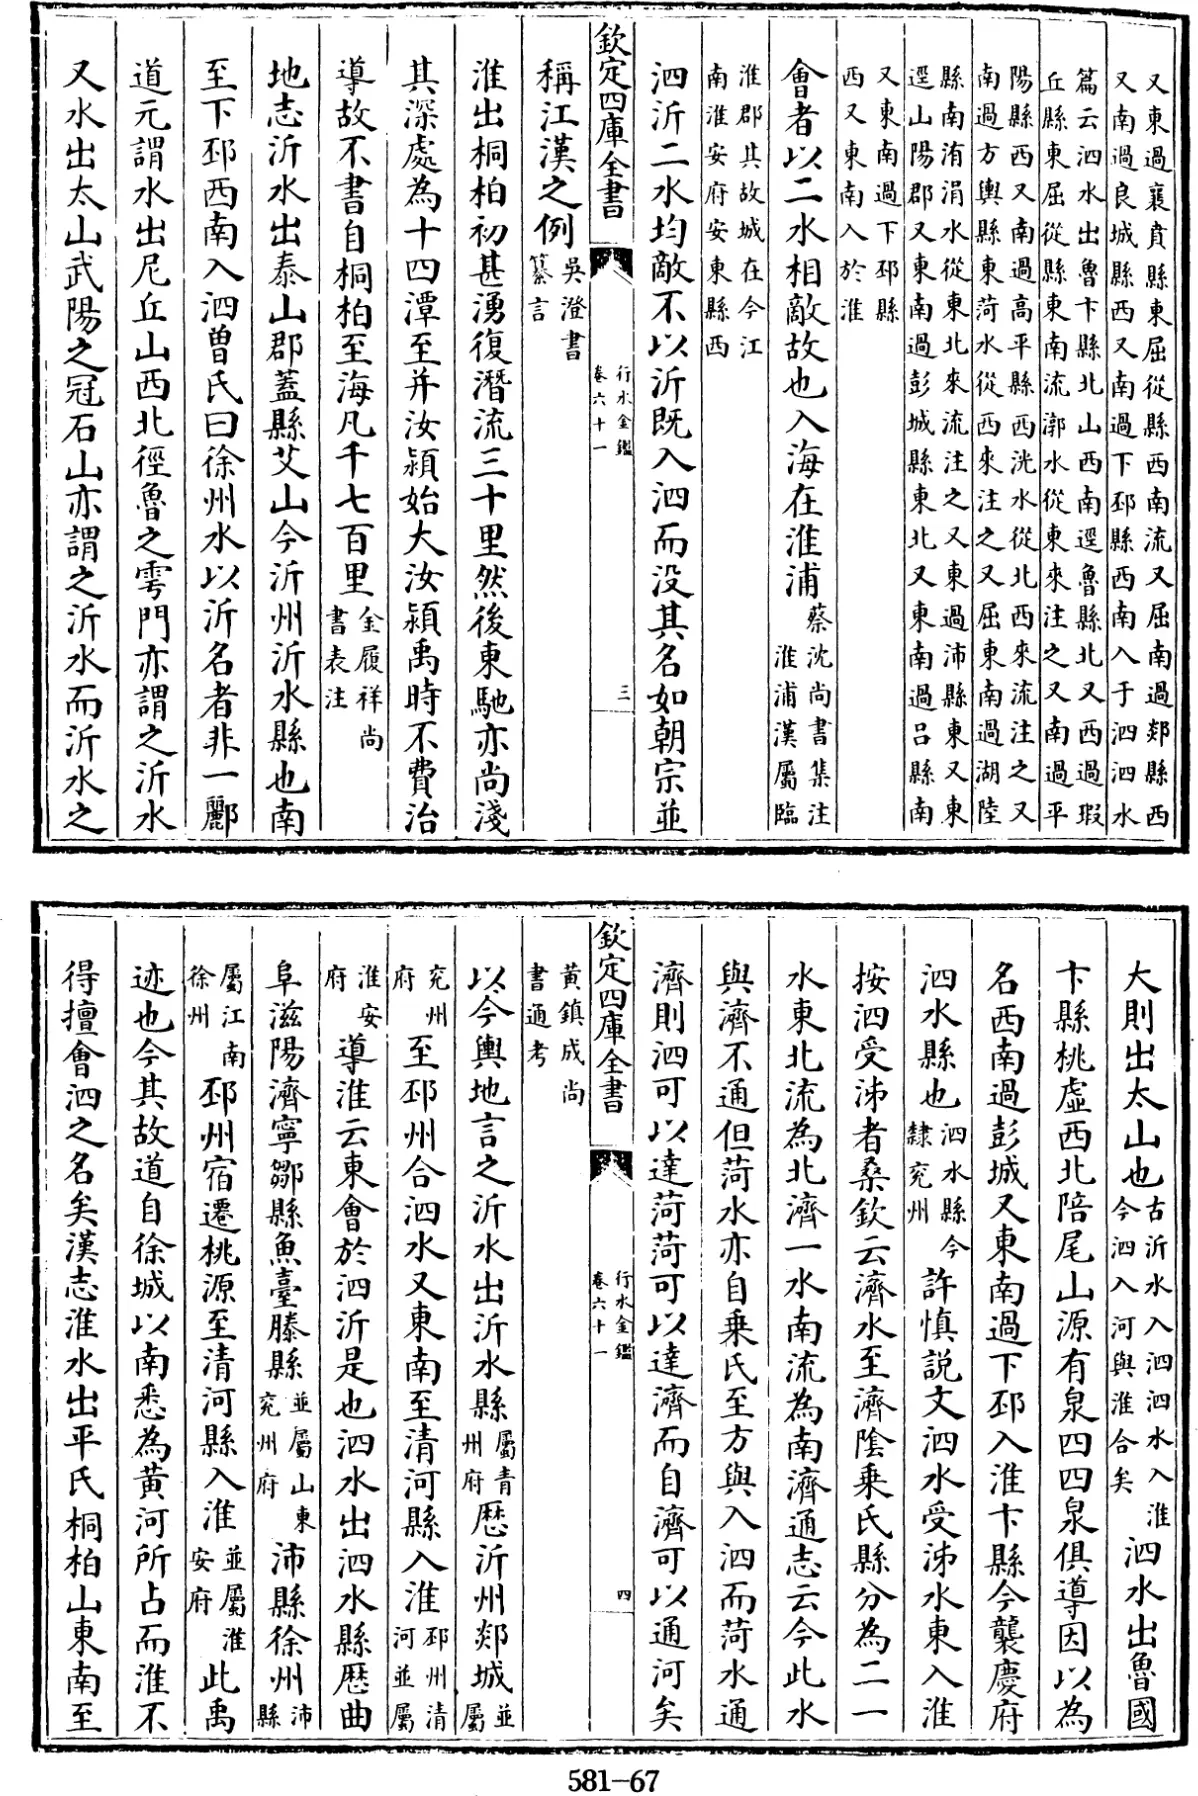 又東過襄賁縣東屈從縣西南流又屈南過郯縣西
又南過良城縣西又南過下邳縣西南入于泗泗水
篇云泗水出魯卞縣北山西南逕魯縣北又西過瑕
丘縣東屈從縣東南流漷水從東來注之又南過平
陽縣西又南過高平縣西洸水從北西來流注之又
南過方輿縣東菏水從西來注之又屈東南過湖陸
縣南洧涓水從東北來流注之又東過沛縣東又東
逕山陽郡又東南過彭城縣東北又東南過呂縣南
又東南過下邳縣
西又東南入於淮
會者以二水相敵故也入海在淮浦蔡沈尚書集注
淮浦漢屬臨
淮郡其故城在今江
南淮安府安東縣西
泗沂二水均敵不以沂既入泗而没其名如朝宗並
欽定四庫全書
行水金鑑
卷六十一
三
稱江漢之例吳澄書
纂言
淮出桐柏初甚湧復潛流三十里然後東馳亦尚淺
其深處為十四潭至并汝潁始大汝潁禹時不費治
導故不書自桐柏至海凡千七百里金履祥尚
書表注
地志沂水出泰山郡蓋縣艾山今沂州沂水縣也南
至下邳西南入泗曾氏曰徐州水以沂名者非一酈
道元謂水出尼丘山西北徑魯之雩門亦謂之沂水
又水出太山武陽之冠石山亦謂之沂水而沂水之
大則出太山也古沂水入泗泗水入淮
今泗入河與淮合矣
泗水出魯國
卞縣桃虛西北陪尾山源有泉四四泉俱導因以為
名西南過彭城又東南過下邳入淮卞縣今襲慶府
泗水縣也泗水縣今
隸兖州
許慎説文泗水受泲水東入淮
按泗受泲者桑欽云濟水至濟陰乗氏縣分為二一
水東北流為北濟一水南流為南濟通志云今此水
與濟不通但菏水亦自乗氏至方與入泗而菏水通
濟則泗可以達菏菏可以達濟而自濟可以通河矣
欽定四庫全書
行水金鑑
卷六十一
四
黄鎮成尚
書通考
以今輿地言之沂水出沂水縣屬青
州府
歴沂州郯城並
屬
兖州
府
至邳州合泗水又東南至清河縣入淮邳州清
河並屬
淮安
府
導淮云東會於泗沂是也泗水出泗水縣歴曲
阜滋陽濟寧鄒縣魚臺滕縣並屬山東
兖州府
沛縣徐州沛
縣
屬江南
徐州
邳州宿遷桃源至清河縣入淮並屬淮
安府
此禹
迹也今其故道自徐城以南悉為黄河所占而淮不
得擅會泗之名矣漢志淮水出平氏桐柏山東南至
581-67